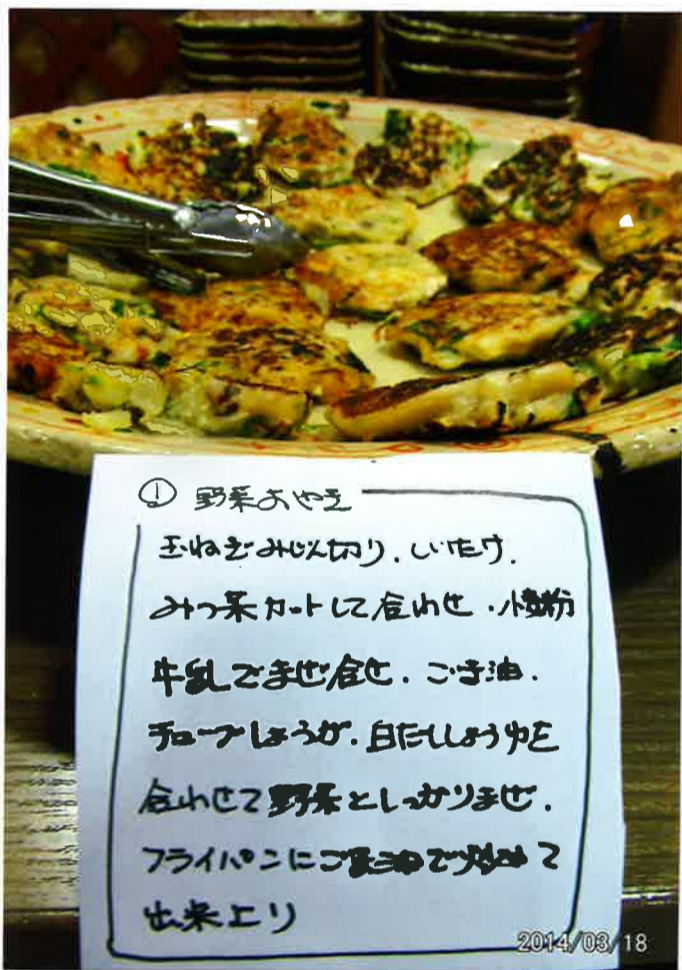 ① 野菜おやき
玉ねぎみじん切り、しいたけ、
みつ葉カットして合わせ、小麦粉
牛乳でまぜ合せ、ごま油、
チューブしょうが、白だししょうゆを
合わせて野菜としっかりまぜ、
フライパンにごま油で炒めて
出来上り
2014/03/18